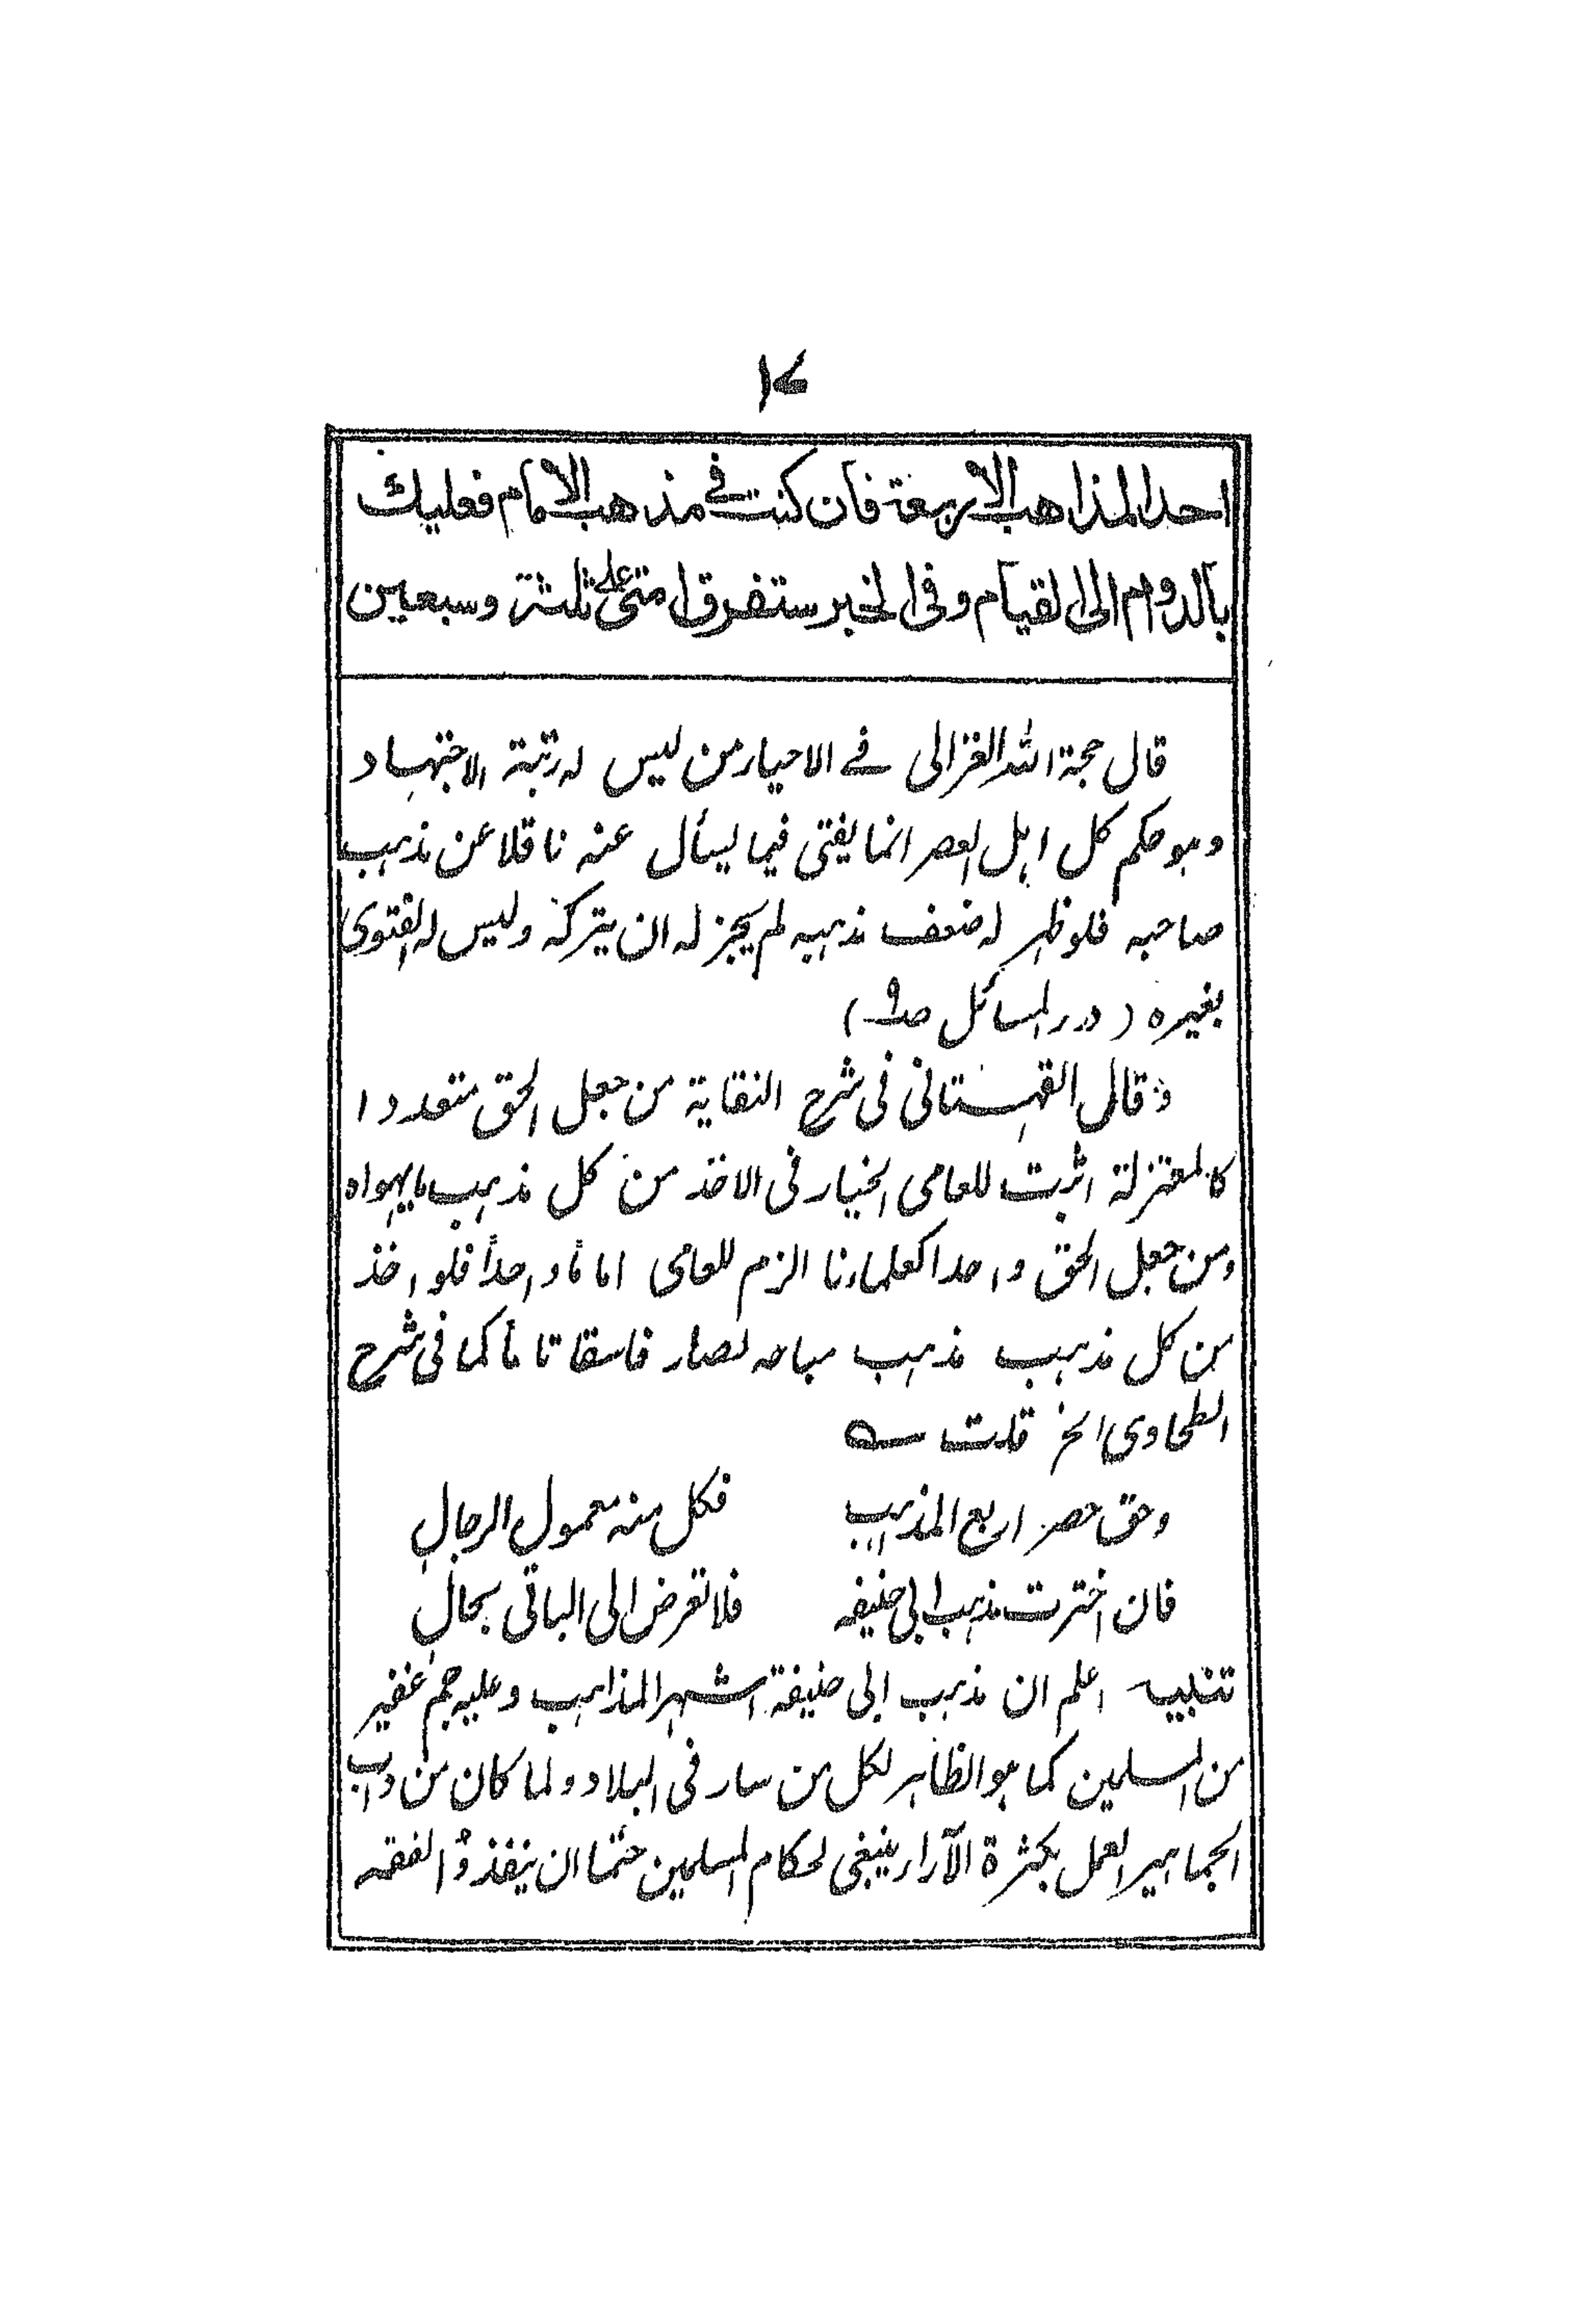 ۱۷
احدا لمذاهب الاربعة فان كنت في مذهب الامام فعليك
بالدوام الى القيام و فى الخبر ستفرق امتى على ثلثة وسبعين
قال حجة الله الغزالى فے الاحياء من ليس له رتبة الاجتهاد
وهو حكم كل اهل العصر انما يفتى فيما ليسأل عنه ناقلا عن مذهب
صاحبه فلو ظهر له ضعف مذهبه لم يجز له ان يتركه وليس له الفتوى
بغيره (درر المسائل صـ۹)
وقال القهستانى فى شرح النقاية من جعل الحق متعددا
كالمعتزلة اثبت للعامى الخيار فى الاخذ من كل مذهب ما يهواه
ومن جعل الحق واحدا كعلماءنا الزم للعامى اماماً واحداً فلو اخذ
من كل مذهب مذهب مباحه لصار فاسقا تاماً كما فى شرح
الطحاوى الخ قلت ؎
وحق حصر اربع المذاهب فكل منه معمول الرجالِ
فان اخترت مذهب ابى حنيفه فلا تعرض الى الباقى بحالِ
تنبيه اعلم ان مذهب ابى حنيفة اشهر المذاهب وعليه جمٌ غفير
من المسلمين كما هو الظاهر لكل من سار فى البلاد ولما كان من داب
الجماهير العمل بكثرة الآراء ينبغى لحكام المسلمين حتما ان ينفذ وُا لفقه